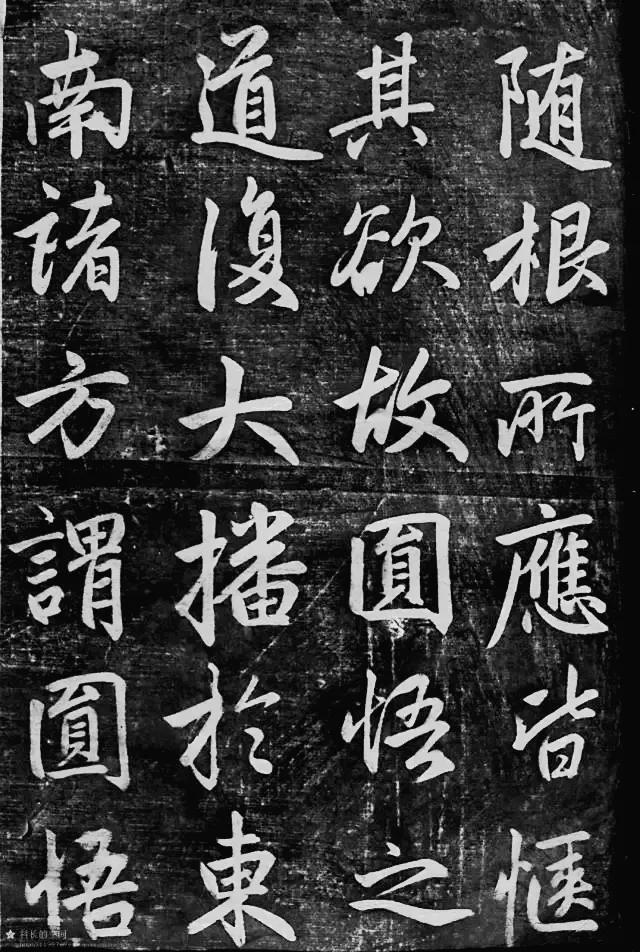 随根所應皆惬
其欲故圓悟之
道復大播於東
南諸方謂圓悟